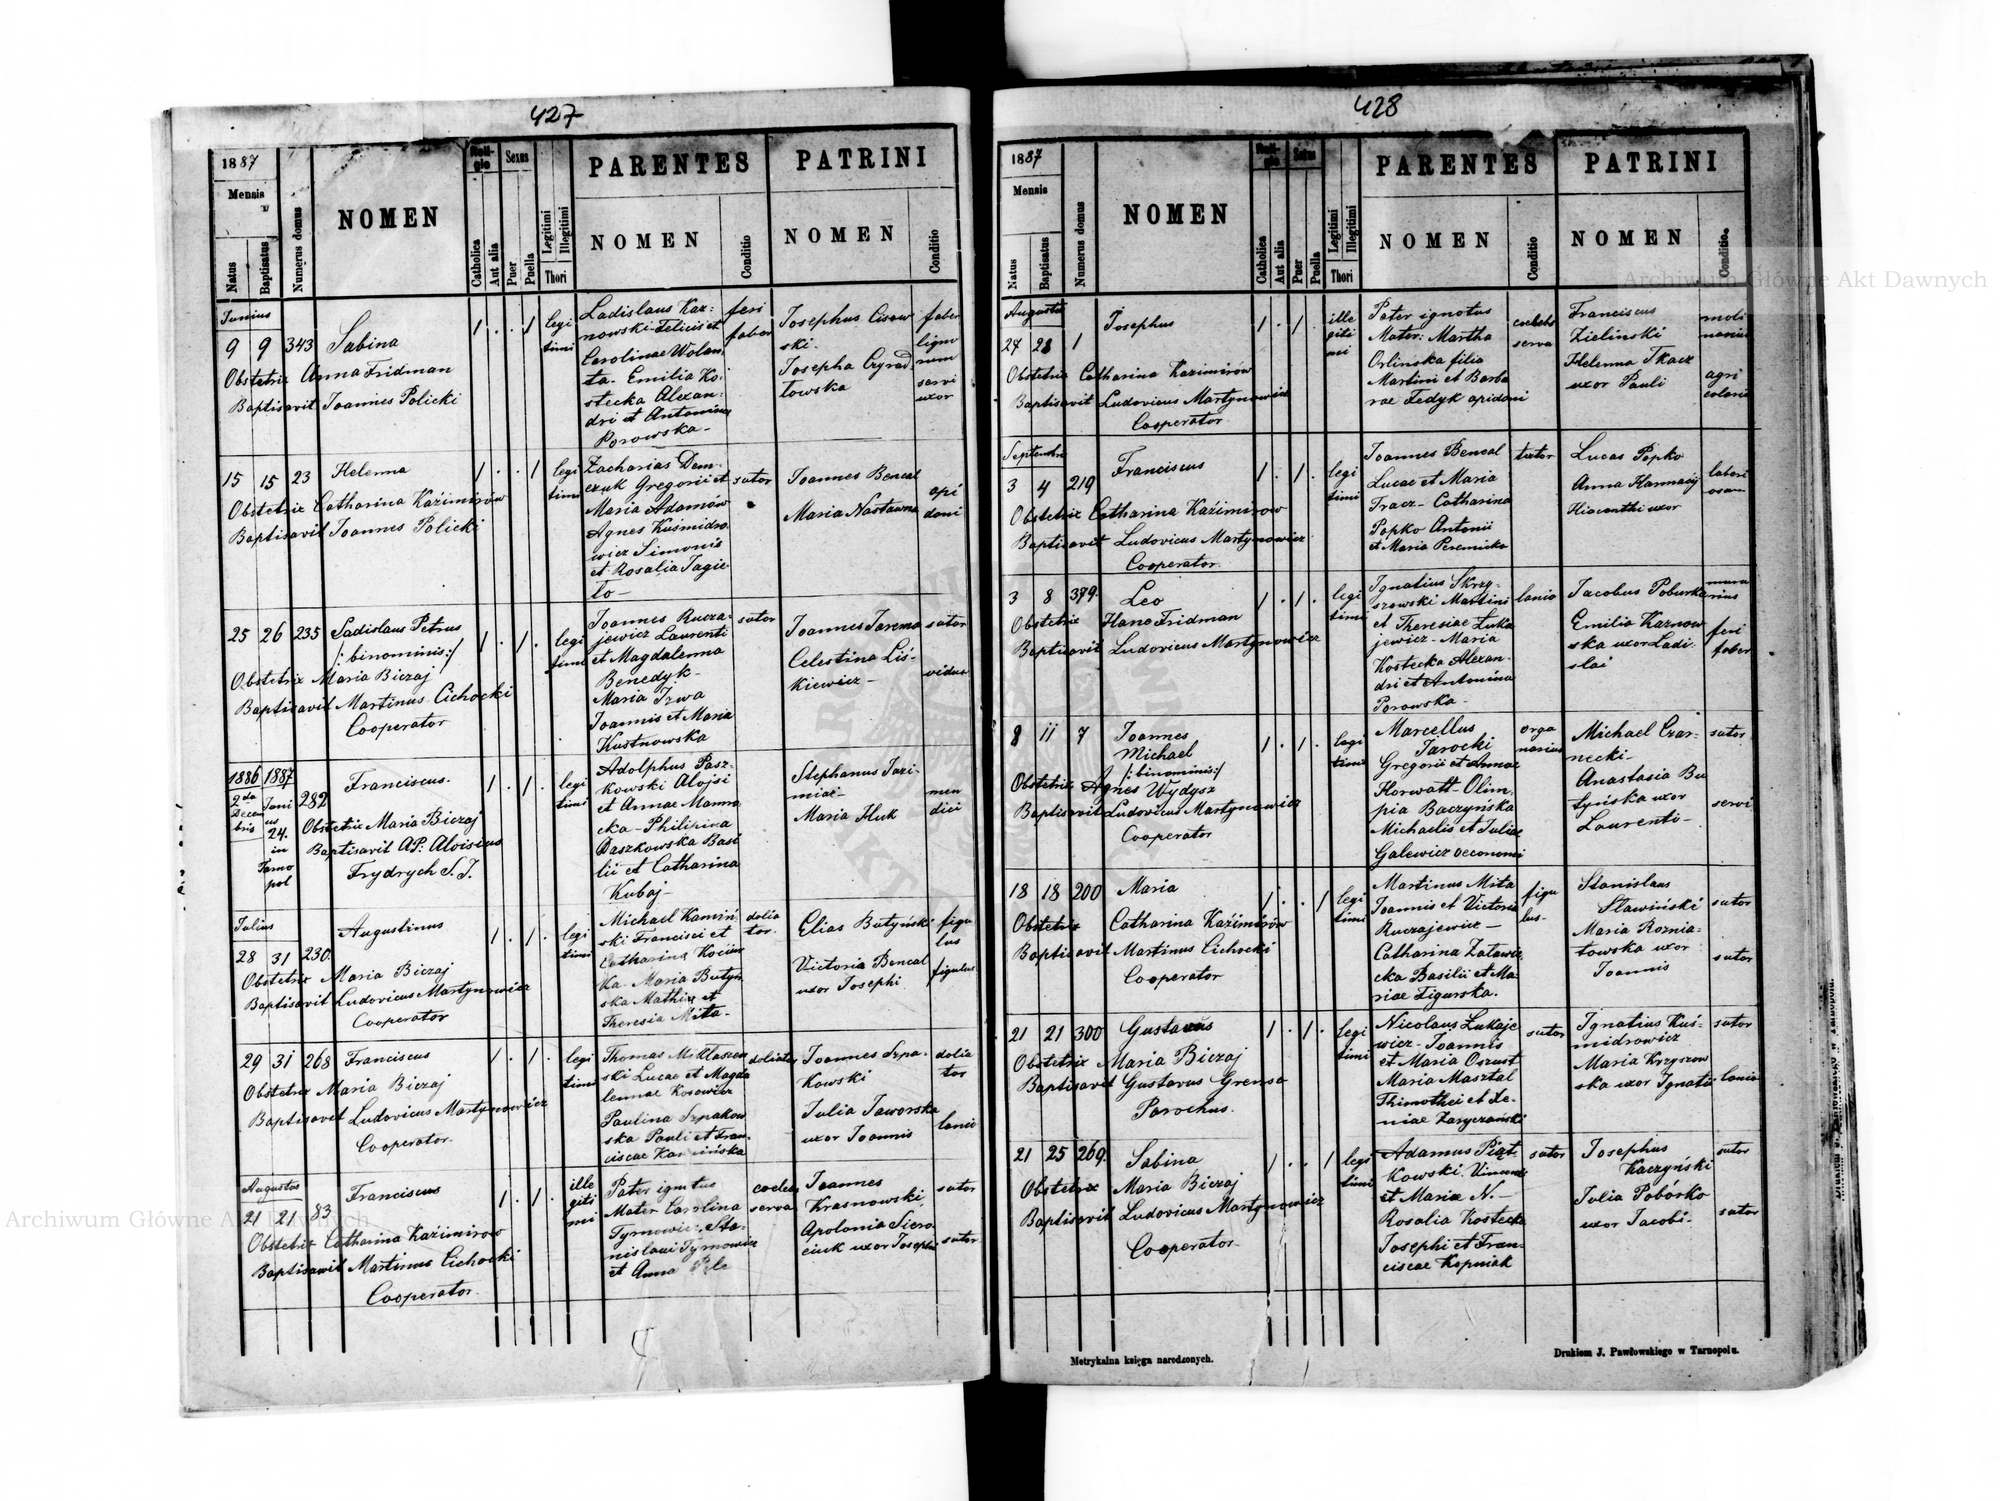 427
1887
Mensis
Natus
Baptisatus
Numerus domus
NOMEN
Religio
Catholica
Aut alia
Sexus
Puer
Puella
Legitimi
Illegitimi
Thori
PARENTES
NOMEN
Conditio
PATRINI
NOMEN
Conditio
Junius
9 9 343 Sabina
Obstetrix Anna Fridman
Baptisavit Joannes Policki
legi
timi
Ladislaus Kaz:
nowski Felicis et
Carolinae Wolan
ta. Emilia Ko:
stecka Alexan:
dri et Antonina
Porowska-
feri
faber
Josephus Cisow
ski.
Josepha Cyrad
towska
faber
ligno
rum
servi
uxor
15 15 23 Helenna
Obstetrix Catharina Kaźimirów
Baptisavit Joannes Policki
legi
timi
Zacharias Dem-
czuk Gregorii et
Maria Adamów
Agnes Kuśmidro
wicz Simonis
et Rosalia Jagie
to-
sutor
Joannes Bencal
Maria Nastawna
opi
dani
25 26 235 Ladislaus Petrus
/:binominis:/
Obstetrix Maria Biczaj
Baptisavit Martinus Cichocki
Cooperator
legi
timi
Joannes Rucza-
jewicz Laurenti
et Magdalenna
Benedyk-
Maria Izwa
Joannis et Maria
Kustnowska
sutor
Joannes Jarema
Celestina Liś-
kiewicz-
sutor
vidua
1886 1887
2da
Decem
bris
Juni
us
24.
in
Tarno
pol
282
Franciscus.
Obstetrix Maria Biczaj
Baptisavit AP: Aloisius
Frydrych S.J.
legi
timi
Adolphus Pasz-
kowski Alojsi
et Annae Manna
cka-Philipina
Daszkowska Basi
lii et Catharina
Kubaj-
Stephanus Jazi-
miar-
Maria Huk
men
dici
Julius
28 31 230 Augustinus
Obstetrix Maria Biczaj
Baptisavit Ludovicus Martynowicz
Cooperator
legi
timi
Michael Kamiń
ski Francisci et
Catharina Kocium
ka- Maria Butyn
ska Mathia et
Theresia Mita-
dolia
tor.
Elias Butyński
Victoria Bencal
uxor Josephi
figu
lus
figulus
29 31 268 Franciscus
Obstetrix Maria Biczaj
Baptisavit Ludovicus Martynowicz
Cooperator
legi
timi
Thomas Miklaszew
ski Lucae et Magda
lennae Kosowicz
Paulina Szpakow
ska Pauli et Fran-
ciscae Kamińska
doliator
Joannes Szpa-
kowski
Julia Jaworska
uxor Joannis
dolia
tor
lanio
Augustus
21 21 83 Franciscus
Obstetrix Catharina Kaźimirow
Baptisavit Martinus Cichocki
Cooperator
ille
giti
mi
Pater ignotus
Mater Carolina
Tymowicz Sta-
nislaui Tymowicz
et Anna
coelebs
serva
Joannes
Krasnowski
Apolonia Siero
ciuk uxor Josephi
sutor
sutor
428
1887
Mensis
Natus
Baptisatus
Numerus domus
NOMEN
Religio
Catholica
Aut alia
Sexus
Puer
Puella
Legitimi
Illegitimi
Thori
PARENTES
NOMEN
Conditio
PATRINI
NOMEN
Conditio
Augusti
27 28 1 Josephus
Obstetrix Catharina Kazimirów
Baptisavit Ludovicus Martynowicz
Cooperator
ille
giti
mi
Pater ignotus
Mater: Martha
Orlińska filia
Martini et Barba
rae Fedyk opidani
coelebs
serva
Franciscus
Zielinski
Helenna Tkacz
uxor Pauli
moli
narius
agri
colarii
Septembri
3 4 219 Franciscus
Obstetrix Catharina Kaźimirow
Baptisavit Ludovicus Martynowicz
Cooperator
legi
timi
Joannes Bencal
Lucae et Maria
Tracz- Catharina
Popko Antonii
et Maria Peremicka
Lucas Popko
Anna Harmacij
Hiacenthi uxor
labori
osau
3 8 379. Leo
Obstetrix Hano Fridman
Baptisavit Ludovicus Martynowicz
legi
timi
Ignatius Skrzy-
szowski Martini
et Theresiae Luka
jewicz- Maria
Kostecka Alexan-
dri et Antonina
Porowska-
lanio
Jacobus Poburka
Emilia Kaznow
ska uxor Ladi-
slai
mura
rius
feri
faber
8 11 7 Joannes
Michael
/:binominis:/
Obstetrix Agnes Wydysz
Baptisavit Ludovicus Martynowicz
Cooperator
legi
timi
Marcellus
Jarocki
Gregorii et Annae
Horwatt- Olim
pia Baczyńska
Michaelis et Juliae
Galewicz oeconomi
orga
narius
Michael Czar-
necki-
Anastasia Bu
tyńska uxor
Laurenti-
sutor
servi
18 18 200 Maria
Obstetrix Catharina Kaźimirów
Baptisavit Martinus Cichocki
Cooperator
legi
timi
Martinus Mita
Joannis et Victoria
Ruczajewicz-
Catharina Zatawie
cka Basilii et Ma-
riae Figurska.
figu
lus-
Stanislaus
Stawiński
Maria Roznia-
towska uxor
Joannis
sutor
sutor
21 21 300 Gustavus
Obstetrix Maria Biczaj
Baptisavit Gustavus Grenso
Parochus.
legi
timi
Nicolaus Łukaje
wicz- Joannis
et Maria Oszust
Maria Masztal
Thimothei et Xe-
niae Zaryczański
sutor
Ignatius Kuś-
midrowicz
Maria Krzyszow
ska uxor Ignatii
sutor
lanio
21 25 269. Sabina
Obstetrix Maria Biczaj
Baptisavit Ludovicus Martynowicz
Cooperator-
legi
timi
Adamus Piąt-
kowski Vincenti
et Mariae N.-
Rosalia Kostecka
Josephi et Fran-
ciscae Kopniak
sutor
Josephus
Kaczyński
Julia Pobórko
uxor Jacobi-
sutor
sutor
Metrykalna księga narodzonych.
Drukiem J. Pawłowskiego w Tarnopolu.
Archiwum Główne Akt Dawnych
Archiwum Główne Akt Dawnych